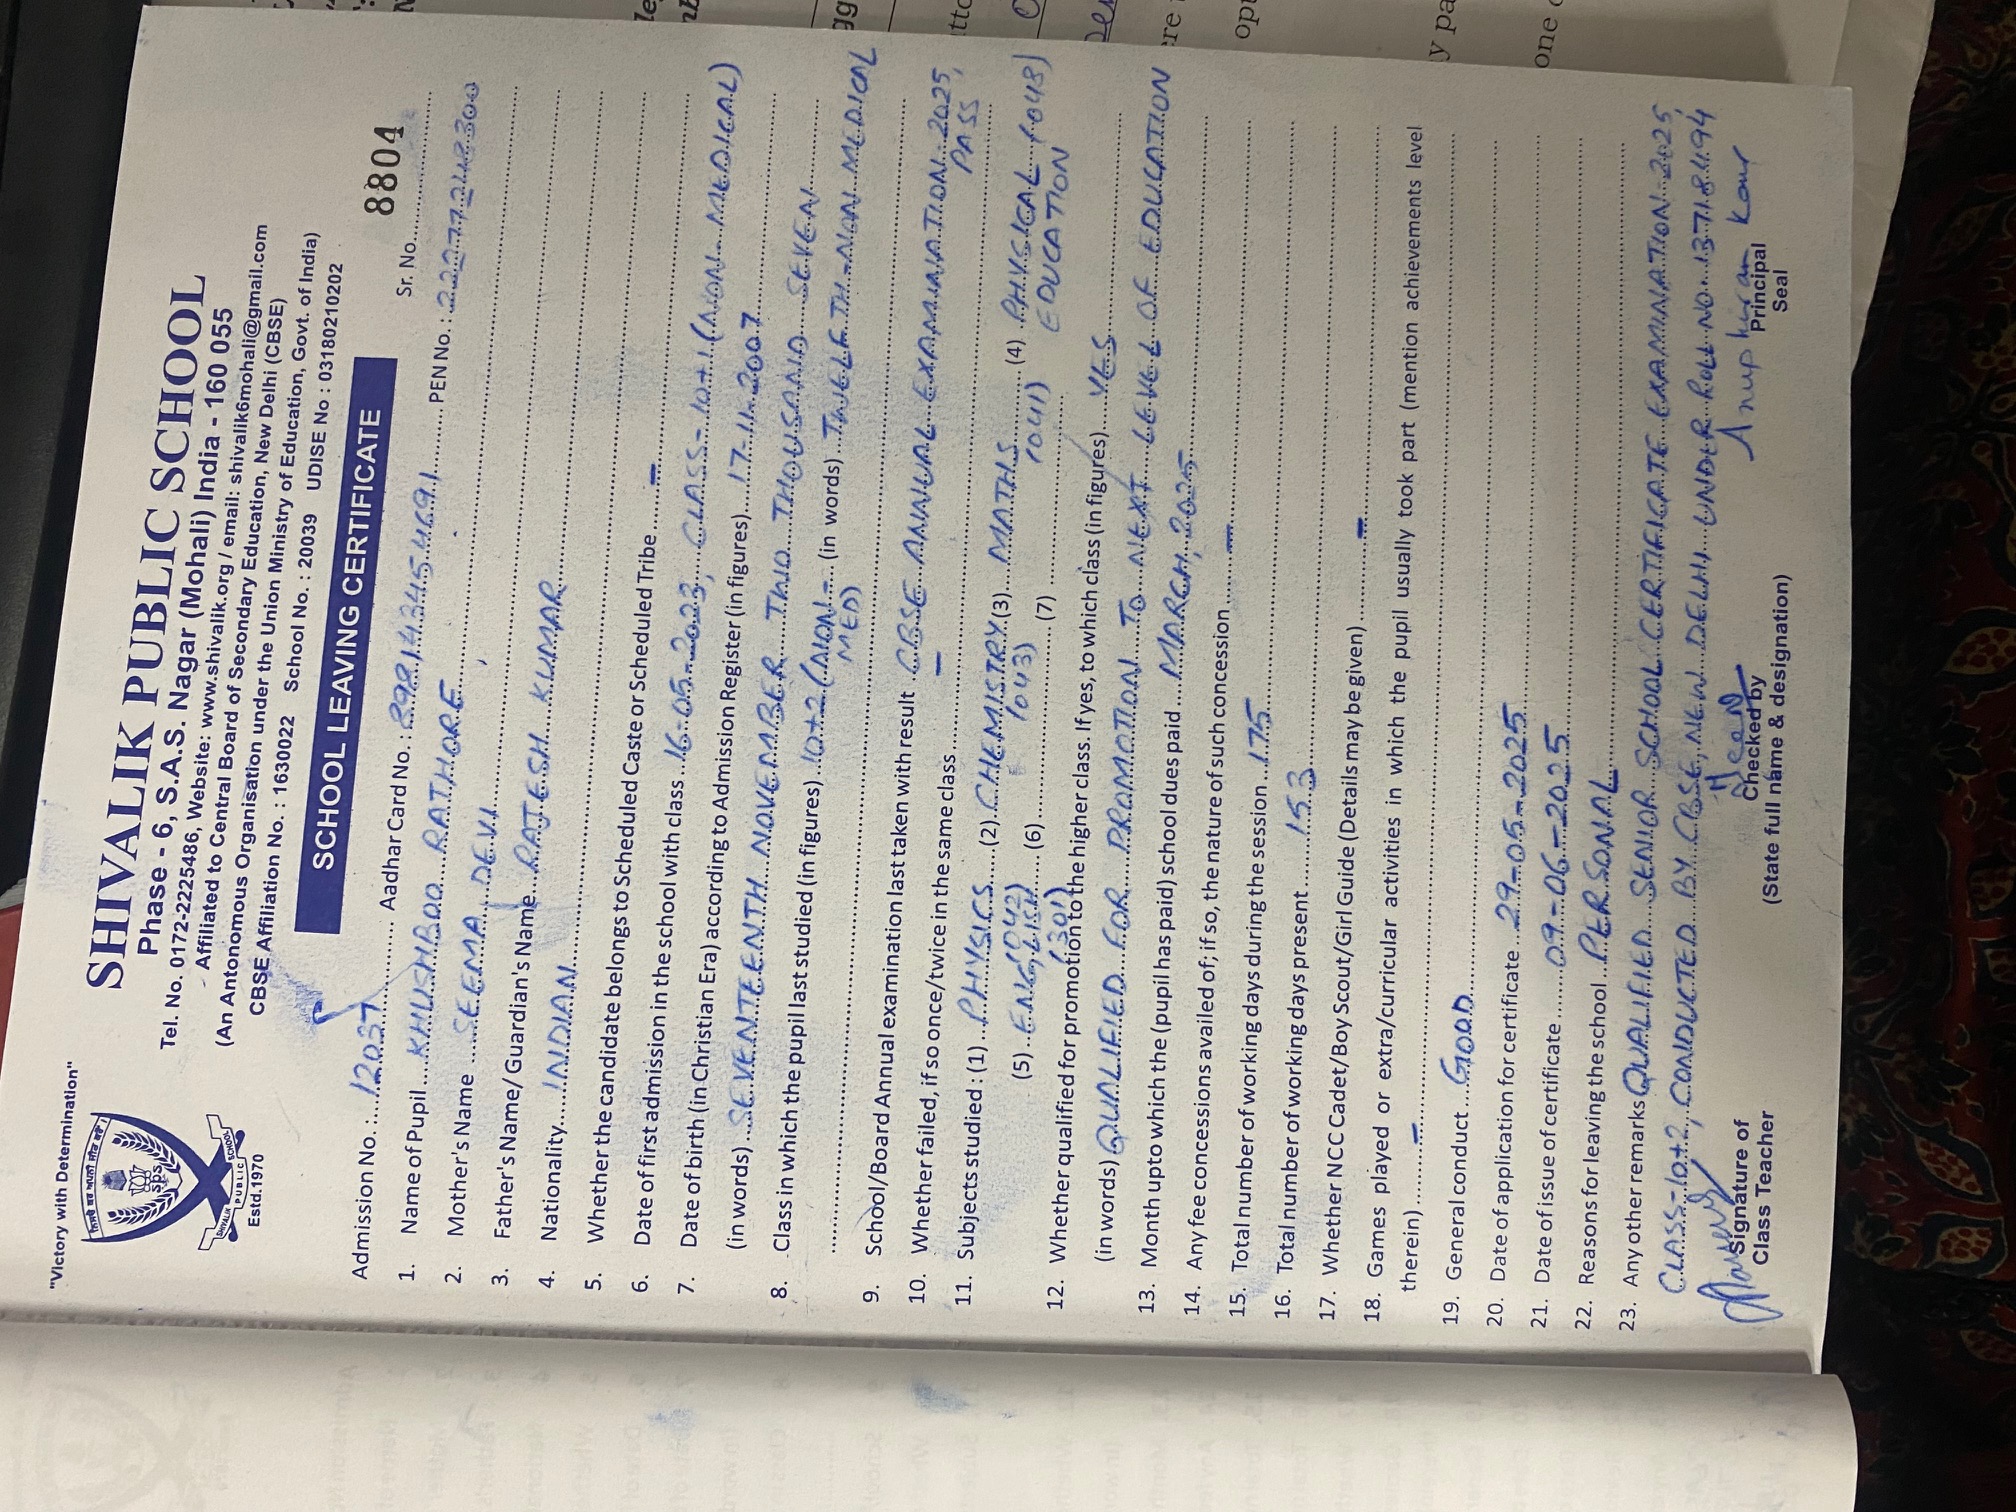 "Victory with Determination"
SHIVALIK PUBLIC SCHOOL
Phase - 6, S.A.S. Nagar (Mohali) India - 160 055
Tel. No. 0172-2225486, Website: www.shivalik.org / email: shivalik6mohali@gmail.com
Affiliated to Central Board of Secondary Education, New Delhi (CBSE)
(An Autonomous Organisation under the Union Ministry of Education, Govt. of India)
CBSE Affiliation No. : 1630022 School No. : 20039 UDISE No : 03180210202
sps
SHIVALIK PUBLIC SCHOOL
Estd.1970
SCHOOL LEAVING CERTIFICATE
Sr. No. 8804
Admission No. : 12037 Aadhar Card No. : 899143454691 PEN No. : 22077248300
1. Name of Pupil KHUSHBOO RATHORE
2. Mother's Name SEEMA DEVI
3. Father's Name/ Guardian's Name RAJESH KUMAR
4. Nationality INDIAN
5. Whether the candidate belongs to Scheduled Caste or Scheduled Tribe -
6. Date of first admission in the school with class 16-05-2023, CLASS-10+1 (NON-MEDICAL)
7. Date of birth (in Christian Era) according to Admission Register (in figures) 17-11-2007
(in words) SEVENTEENTH NOVEMBER TWO THOUSAND SEVEN
8. Class in which the pupil last studied (in figures) 10+2 (NON- (in words) TWELFTH-NON MEDICAL
MED)
9. School/Board Annual examination last taken with result CBSE ANNUAL EXAMINATION 2025,
PASS
10. Whether failed, if so once/twice in the same class -
11. Subjects studied : (1) PHYSICS (2) CHEMISTRY (3) MATHS (4) PHYSICAL (048)
(042) (043) (041) EDUCATION
(5) ENGLISH (6) (7)
(301)
12. Whether qualified for promotion to the higher class. If yes, to which class (in figures) YES
(in words) QUALIFIED FOR PROMOTION TO NEXT LEVEL OF EDUCATION
13. Month upto which the (pupil has paid) school dues paid MARCH, 2025
14. Any fee concessions availed of; if so, the nature of such concession -
15. Total number of working days during the session 175
16. Total number of working days present 153
17. Whether NCC Cadet/Boy Scout/Girl Guide (Details may be given) -
18. Games played or extra/curricular activities in which the pupil usually took part (mention achievements level
therein) -
19. General conduct GOOD
20. Date of application for certificate 29-05-2025
21. Date of issue of certificate 09-06-2025
22. Reasons for leaving the school PERSONAL
23. Any other remarks QUALIFIED SENIOR SCHOOL CERTIFICATE EXAMINATION 2025,
CLASS-10+2, CONDUCTED BY CBSE, NEW DELHI, UNDER ROLL NO 13718494
Anupkiran Kaur
Signature of
Class Teacher
Checked by
(State full name & designation)
Principal
Seal